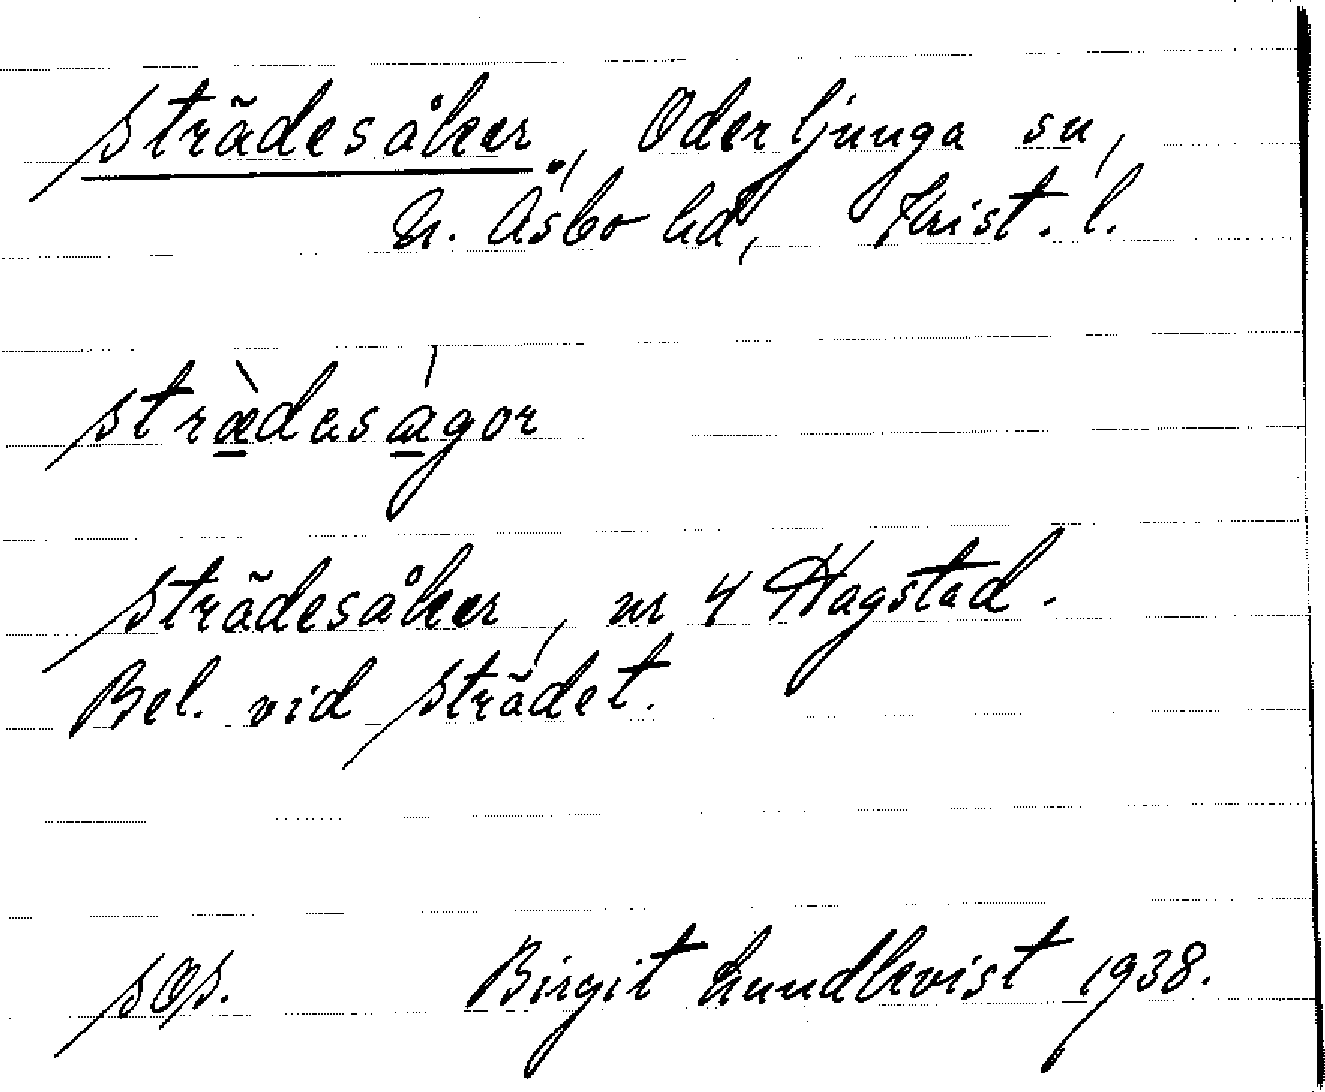 Strädesåker, Oderljunga sn,
N. Åsbo hd, Krist. l.
stræ̀daságor
Strädesåker, nr 4 Hagstad.
Bel. vid Strädet.
Birgit Lundkvist 1938.